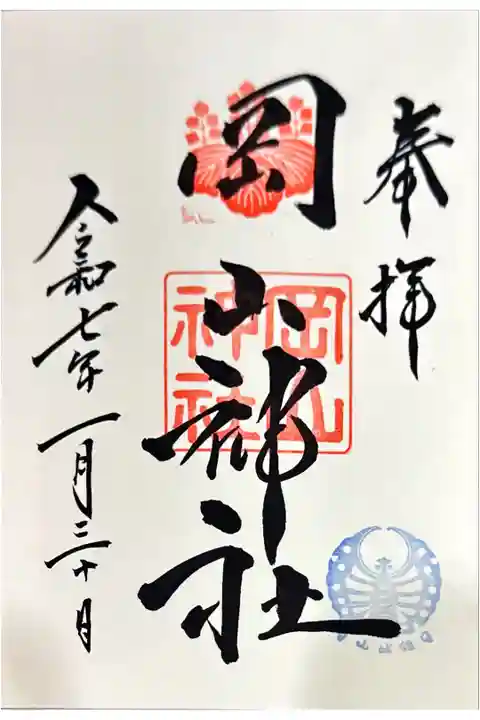 奉拝
岡山神社
岡山神社
令和七年一月三十日